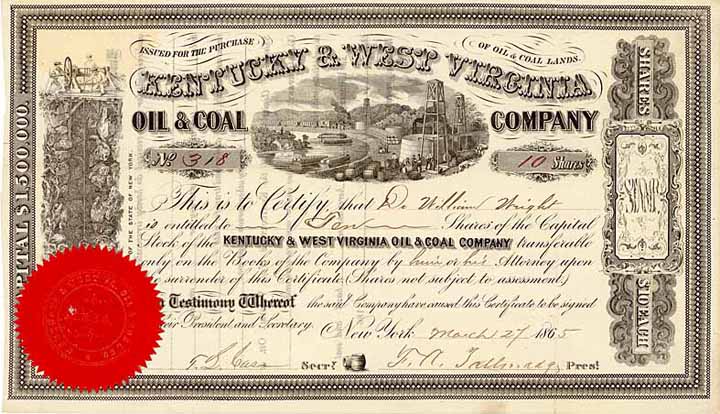 ISSUED FOR THE PURCHASE OF OIL & COAL LANDS.
KENTUCKY & WEST VIRGINIA
OIL & COAL COMPANY
No 318 10 Shares
This is to Certify, that Dr. William Wright
is entitled to Ten Shares of the Capital
Stock of the KENTUCKY & WEST VIRGINIA OIL & COAL COMPANY transferable
only on the Books of the Company by him or his Attorney upon
surrender of this Certificate (Shares not subject to assessment)
Testimony Whereof the said Company have caused this Certificate to be signed
President and Secretary. New York March 27 1865
Secy. Prest.
CAPITAL $1,500,000.
OF THE STATE OF NEW YORK
SHARES
$10 EACH